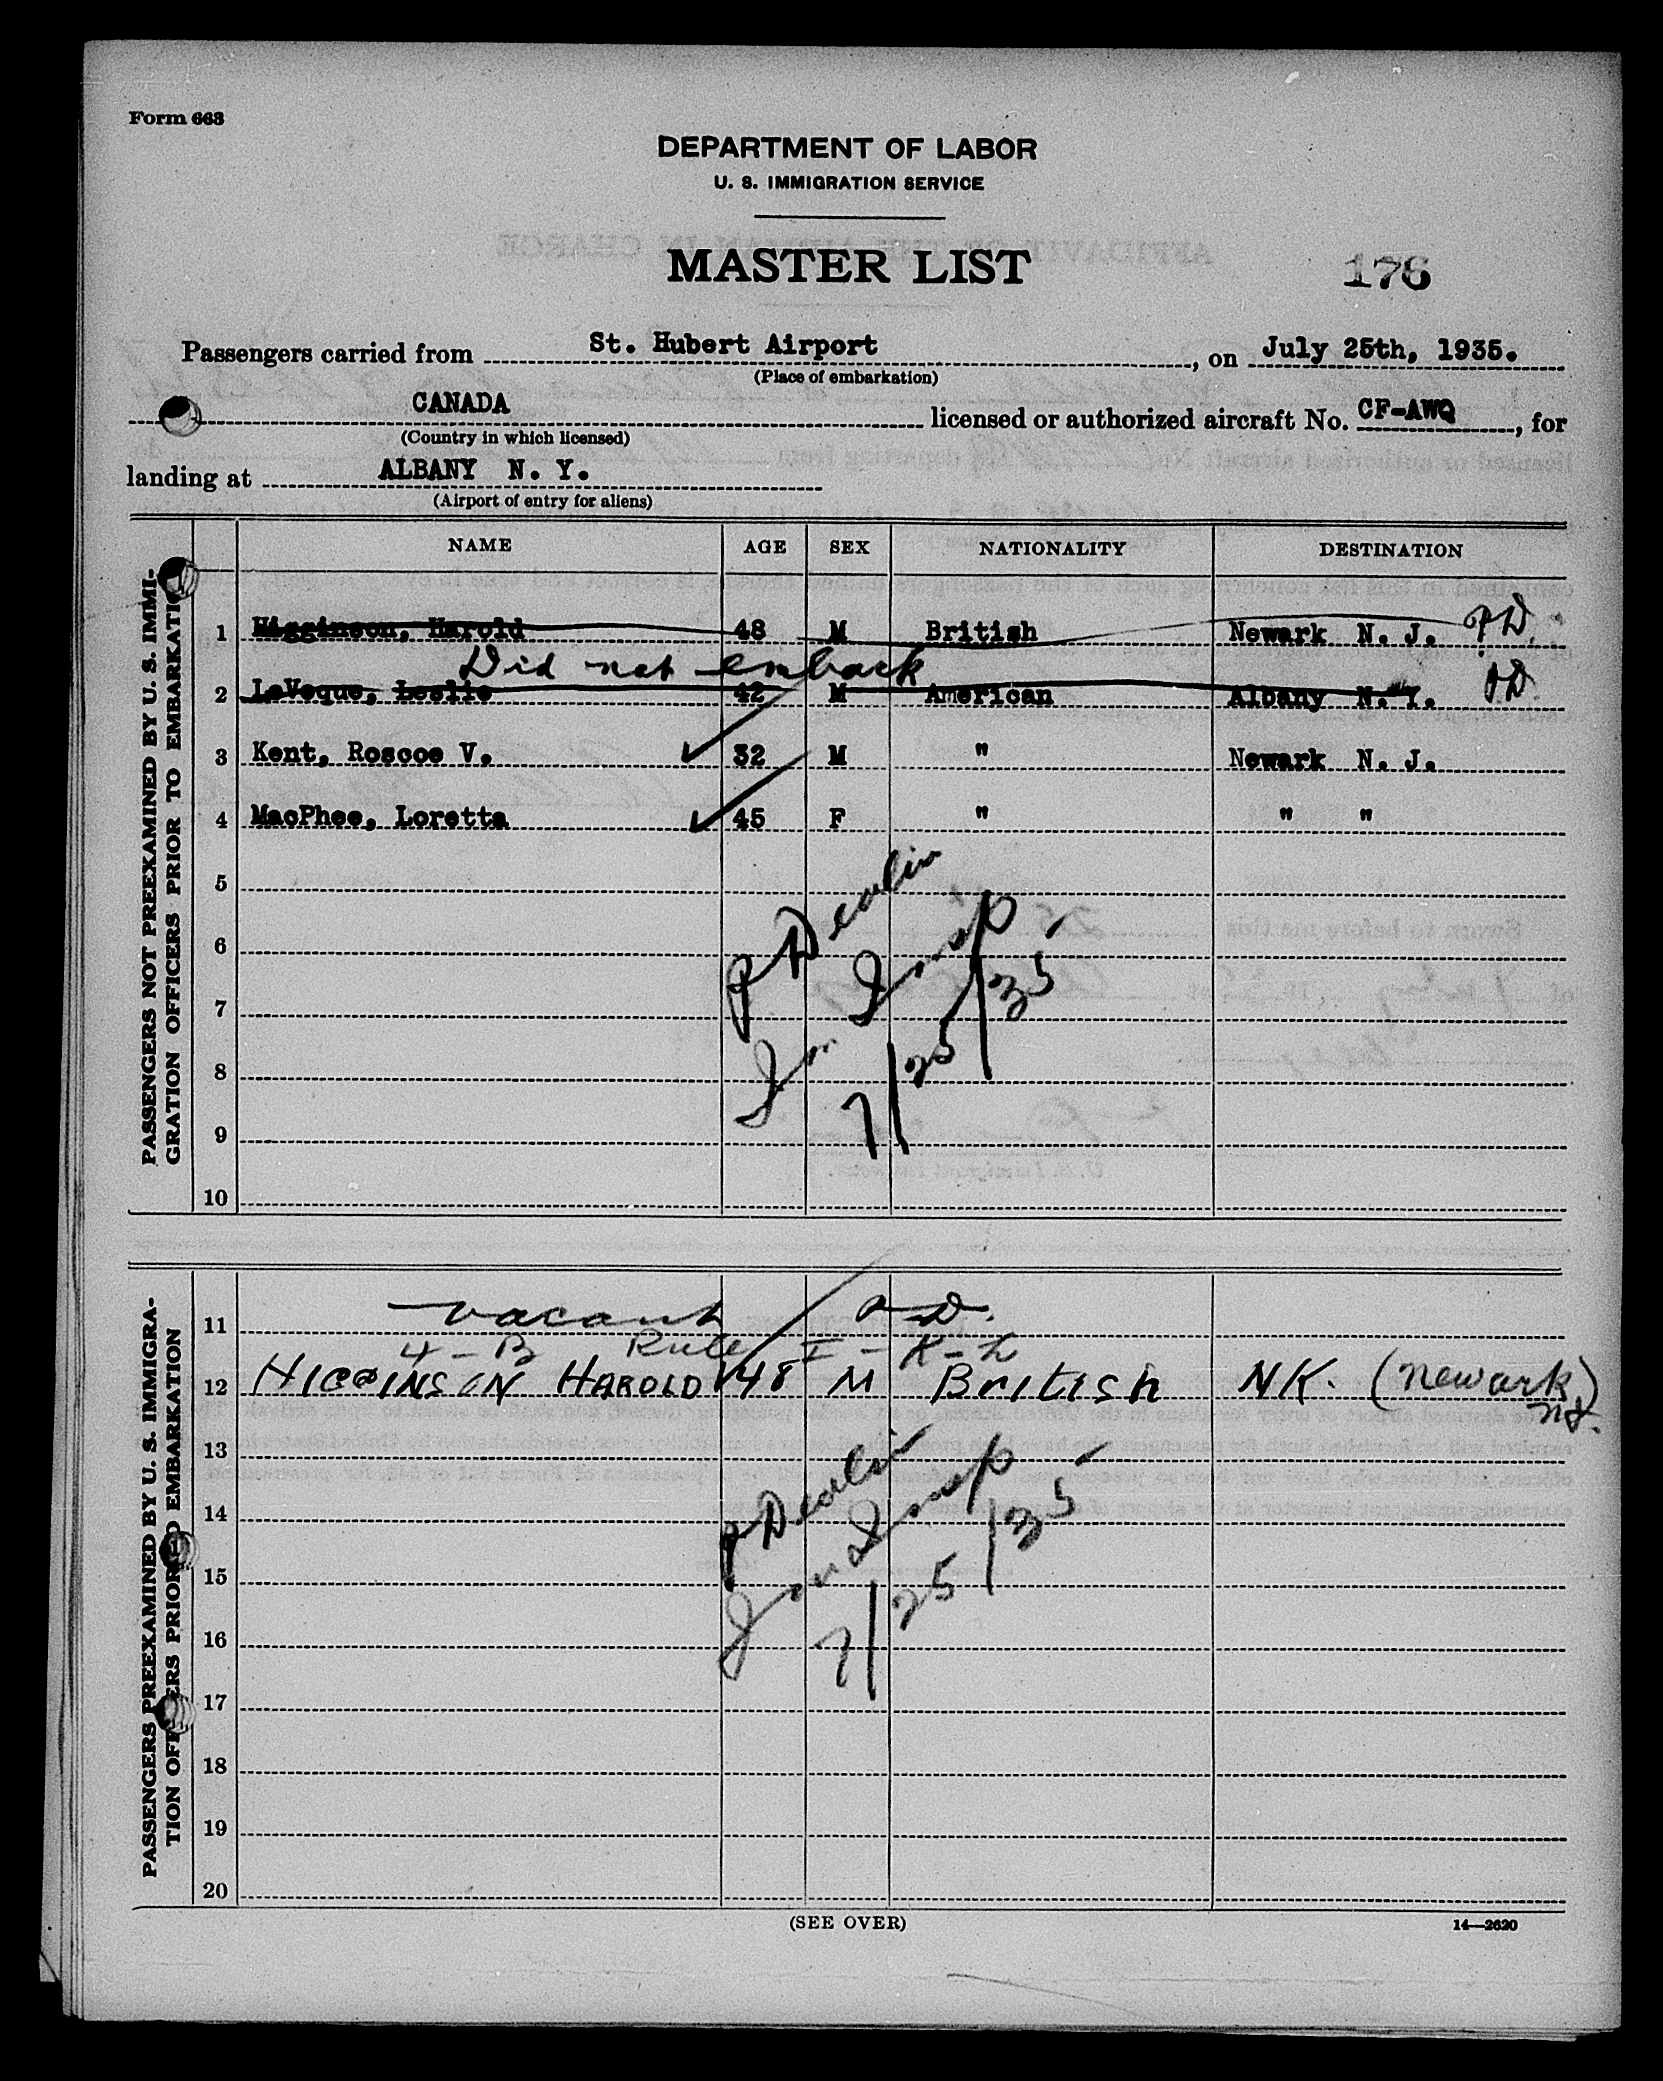 Form 663
DEPARTMENT OF LABOR
U. S. IMMIGRATION SERVICE
MASTER LIST
176
Passengers carried from St. Hubert Airport, on July 25th, 1935.
(Place of embarkation)
CANADA licensed or authorized aircraft No. CF-AWQ, for
(Country in which licensed)
landing at ALBANY N. Y.
(Airport of entry for aliens)
NAME AGE SEX NATIONALITY DESTINATION
PASSENGERS NOT PREEXAMINED BY U. S. IMMI-
GRATION OFFICERS PRIOR TO EMBARKATIO
1 Higginson, Harold 48 M British Newark N. J. PD.
Did not embark
2 LeVeque, Leslie 42 M American Albany N. Y. PD.
3 Kent, Roscoe V. 32 M " Newark N. J.
4 MacPhee, Loretta 45 F " " "
5
6
7
8
9
10
P Devlin
Im Insp
7/25/35
PASSENGERS PREEXAMINED BY U. S. IMMIGRA-
TION OFF ERS PRIOR EMBARKATION
11 vacant PD.
4-B Rule I-K-L
12 HIGGINSON HAROLD 48 M British NK. (Newark
NJ.)
13
14
15
16
17
18
19
20
P Devlin
Insp
7/25/35
(SEE OVER)
14—2620